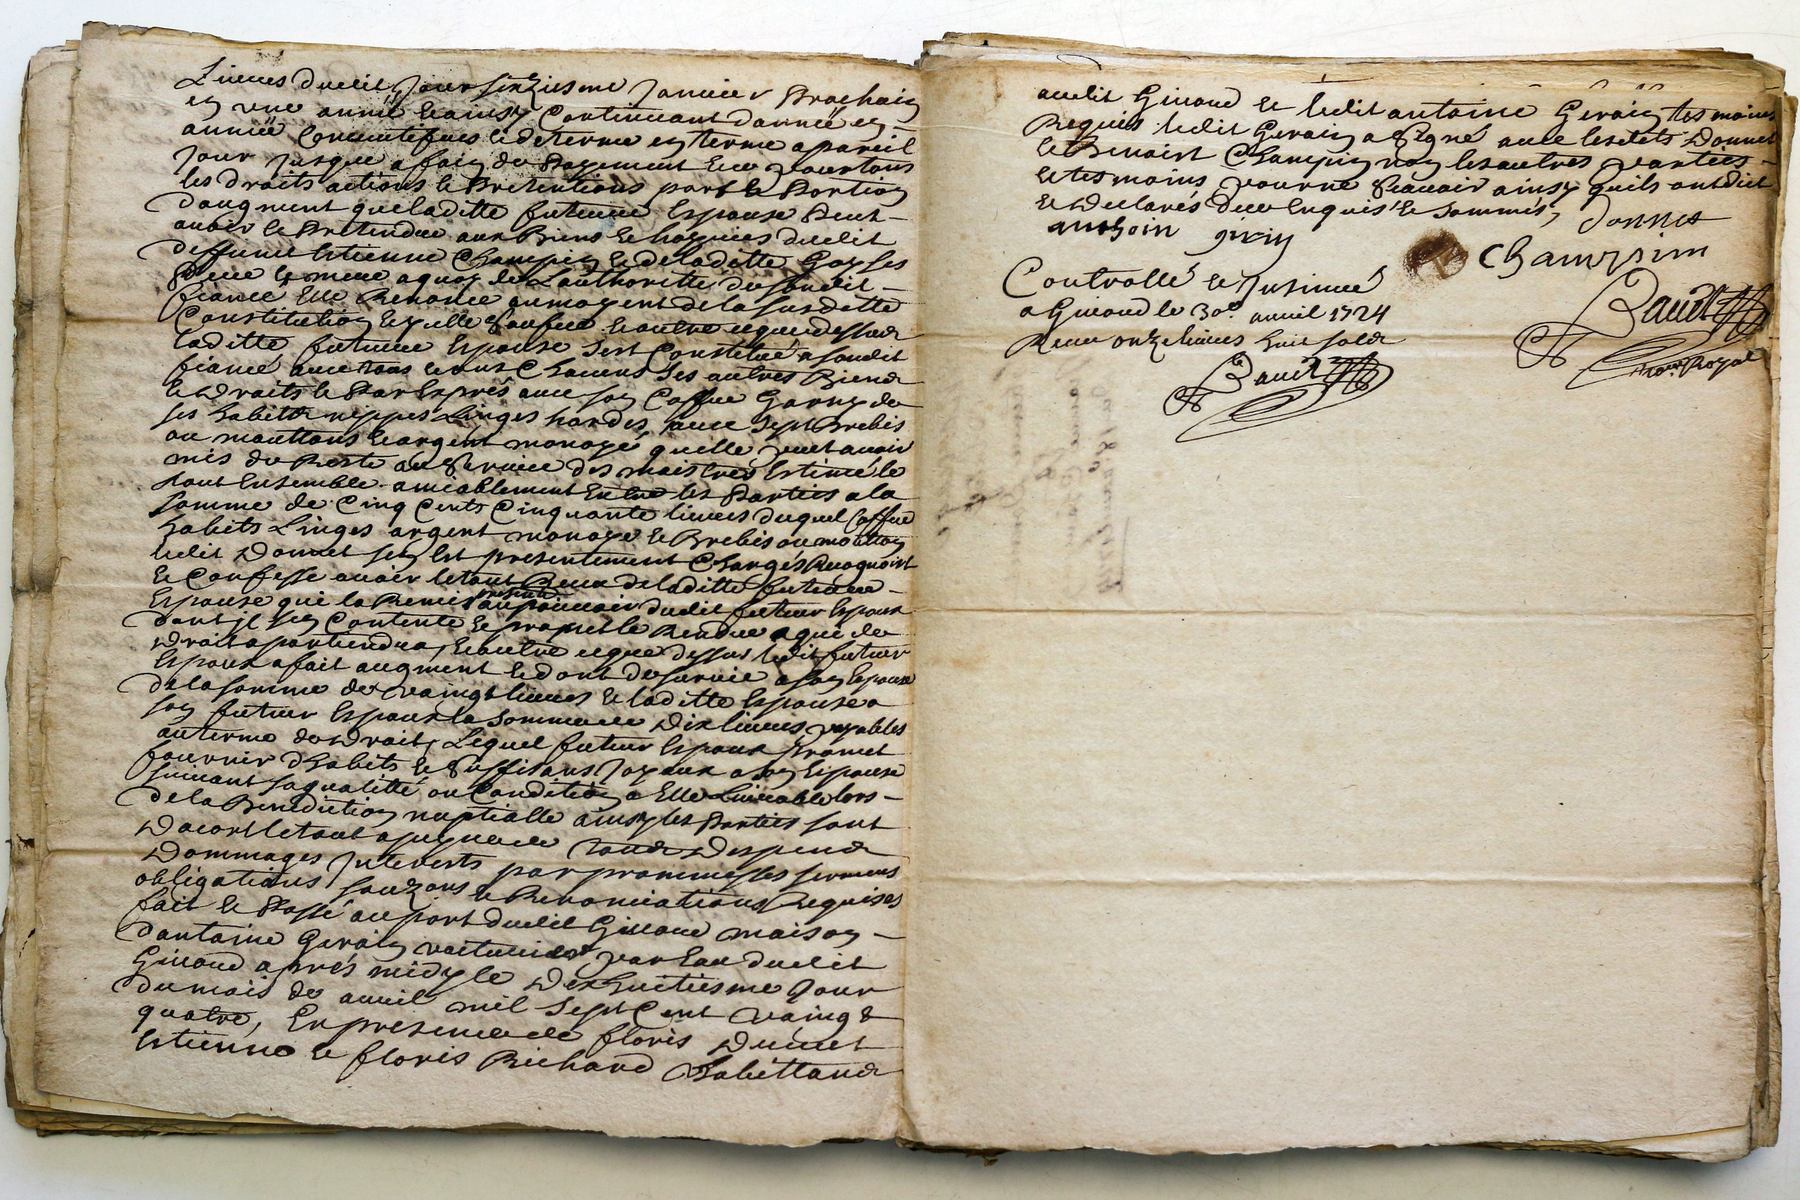 Livres dudit jour seiziesme Janvier Prochain
en une année & ainsy Continuant d'année en
année Consecutifves & de terme en terme a pareil
Jour jusque a fain de Payement & ce pour tous
les droits actions & Pretentions part & Portion
daugment que laditte future Espouse Peut
avoir & Pretendre aux Biens & hoyries dudit
deffunt Estienne Champin & de laditte Goy ses
Pere & mere a quoy de L'authorité de sondit
fiancé Elle Renonce au moyent de la susditte
Constitution & outre ce que dessus
laditte future Espouse sest Constitué a sondit
fiancé avec tous & uns Chacuns ses autres Biens
& Droits & Par Exprés avec son Coffre Garny de
ses habits nippes Linges hardes, avec sept Brebis
ou mouttons & argent monoyé quelle peut avoir
mis de Reste au Service des maistres Estimé le
tout Ensemble amiablement Entre les Parties a la
somme de Cinq Cents Cinquante livres duquel Coffre
habits Linges argent monoyé & Brebis ou moutton
ledit Donnet sen Est presentement Chargés Recognoist
& Confesse avoir le tout Receu de laditte future
Espouse qui la Remis au pouvoir dudit futur Espoux
Dont il sen Contente & promet le Rendre a qui de
Droit apartiendra, & outre ce que dessus ledit futur
Espoux a fait augment & dont de survie a son Espouse
de la somme de vaingt livres & laditte Espouse a
son futur Espoux la somme de Dix livres, payables
au terme de Droit, Lequel futur Espoux promet
fournir d'habits & Suffisans Joyaux a son Espouse
suivant sa qualitté ou Condition a Elle Livrable lors
de la Benediction nuptialle ainsy les Parties sont
D'acort le tout a peyne de tous Despends
Dommages Interests par prommesses sermens
obligations & Renonciations Requises
fait & Passé au port dudit Givord maison
d'antoine Gervain voiturier par Eau dudit
Givord aprés midy le Dixhuitiesme Jour
du mois de avril mil sept Cent vaingt
quatre, En presence de floris Duiret
Estienne & floris Richard habittands
audit Givord & ledit antoine Gervain tesmoins
Requis ledit Gervain a Signé avec lesdits Donnet
& Benoist Champin non les autres parties
& tesmoins pour ne Scavoir ainsy quils ont dit
& Declarés de ce Enquis & Sommés,
Donnet
anthoin gervin
Champin
Controllé & Insinué
a Givord le 30e avril 1724
Receu onze livres huit sols
Baudt
Baudt
nore Royal